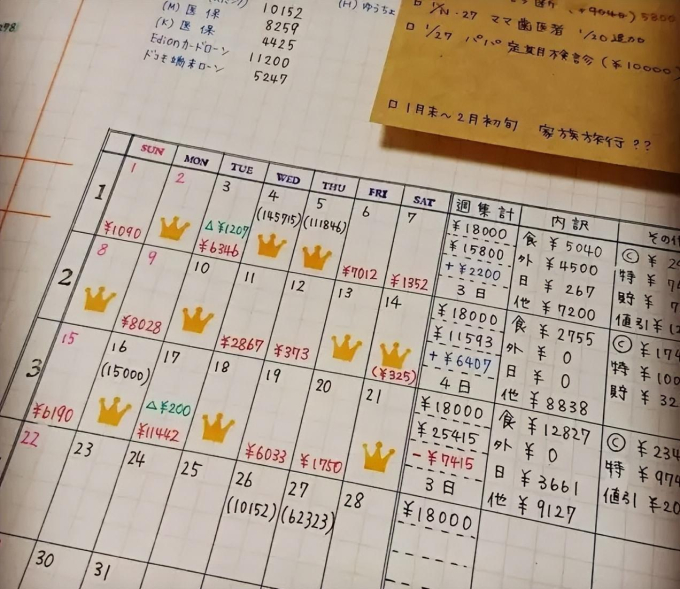 (M) 医保 10152
(K) 医保 8259
Edionカードローン 4425
ドコモ端末ローン 11200
5247
(H) ゆうちょ
□ 1/27 パパ 定期検診 (¥10000)
□ 1月末〜2月初旬 家族旅行??
SUN MON TUE WED THU FRI SAT 週集計 内訳
1
1 2 3 4 5 6 7
(145715) (111846)
△¥1207
¥1090 ¥6346 ¥7012 ¥1352
¥18000
¥15800
+¥2200
3日
食 ¥5040
外 ¥4500
日 ¥267
他 ¥7200
Ⓒ ¥
特 ¥
貯 ¥
値引¥
2
8 9 10 11 12 13 14
¥8028 ¥2867 ¥373 (¥325)
¥18000
¥11593
+¥6407
4日
食 ¥2755
外 ¥0
日 ¥0
他 ¥8838
Ⓒ ¥174
特 ¥100
貯 ¥32
3
15 16 17 18 19 20 21
(15000)
△¥200
¥6190 ¥11442 ¥6033 ¥1750
¥18000
¥25415
-¥7415
3日
食 ¥12827
外 ¥0
日 ¥3661
他 ¥9127
Ⓒ ¥234
特 ¥974
値引 ¥20
22 23 24 25 26 27 28
(10152) (62323)
¥18000
30 31